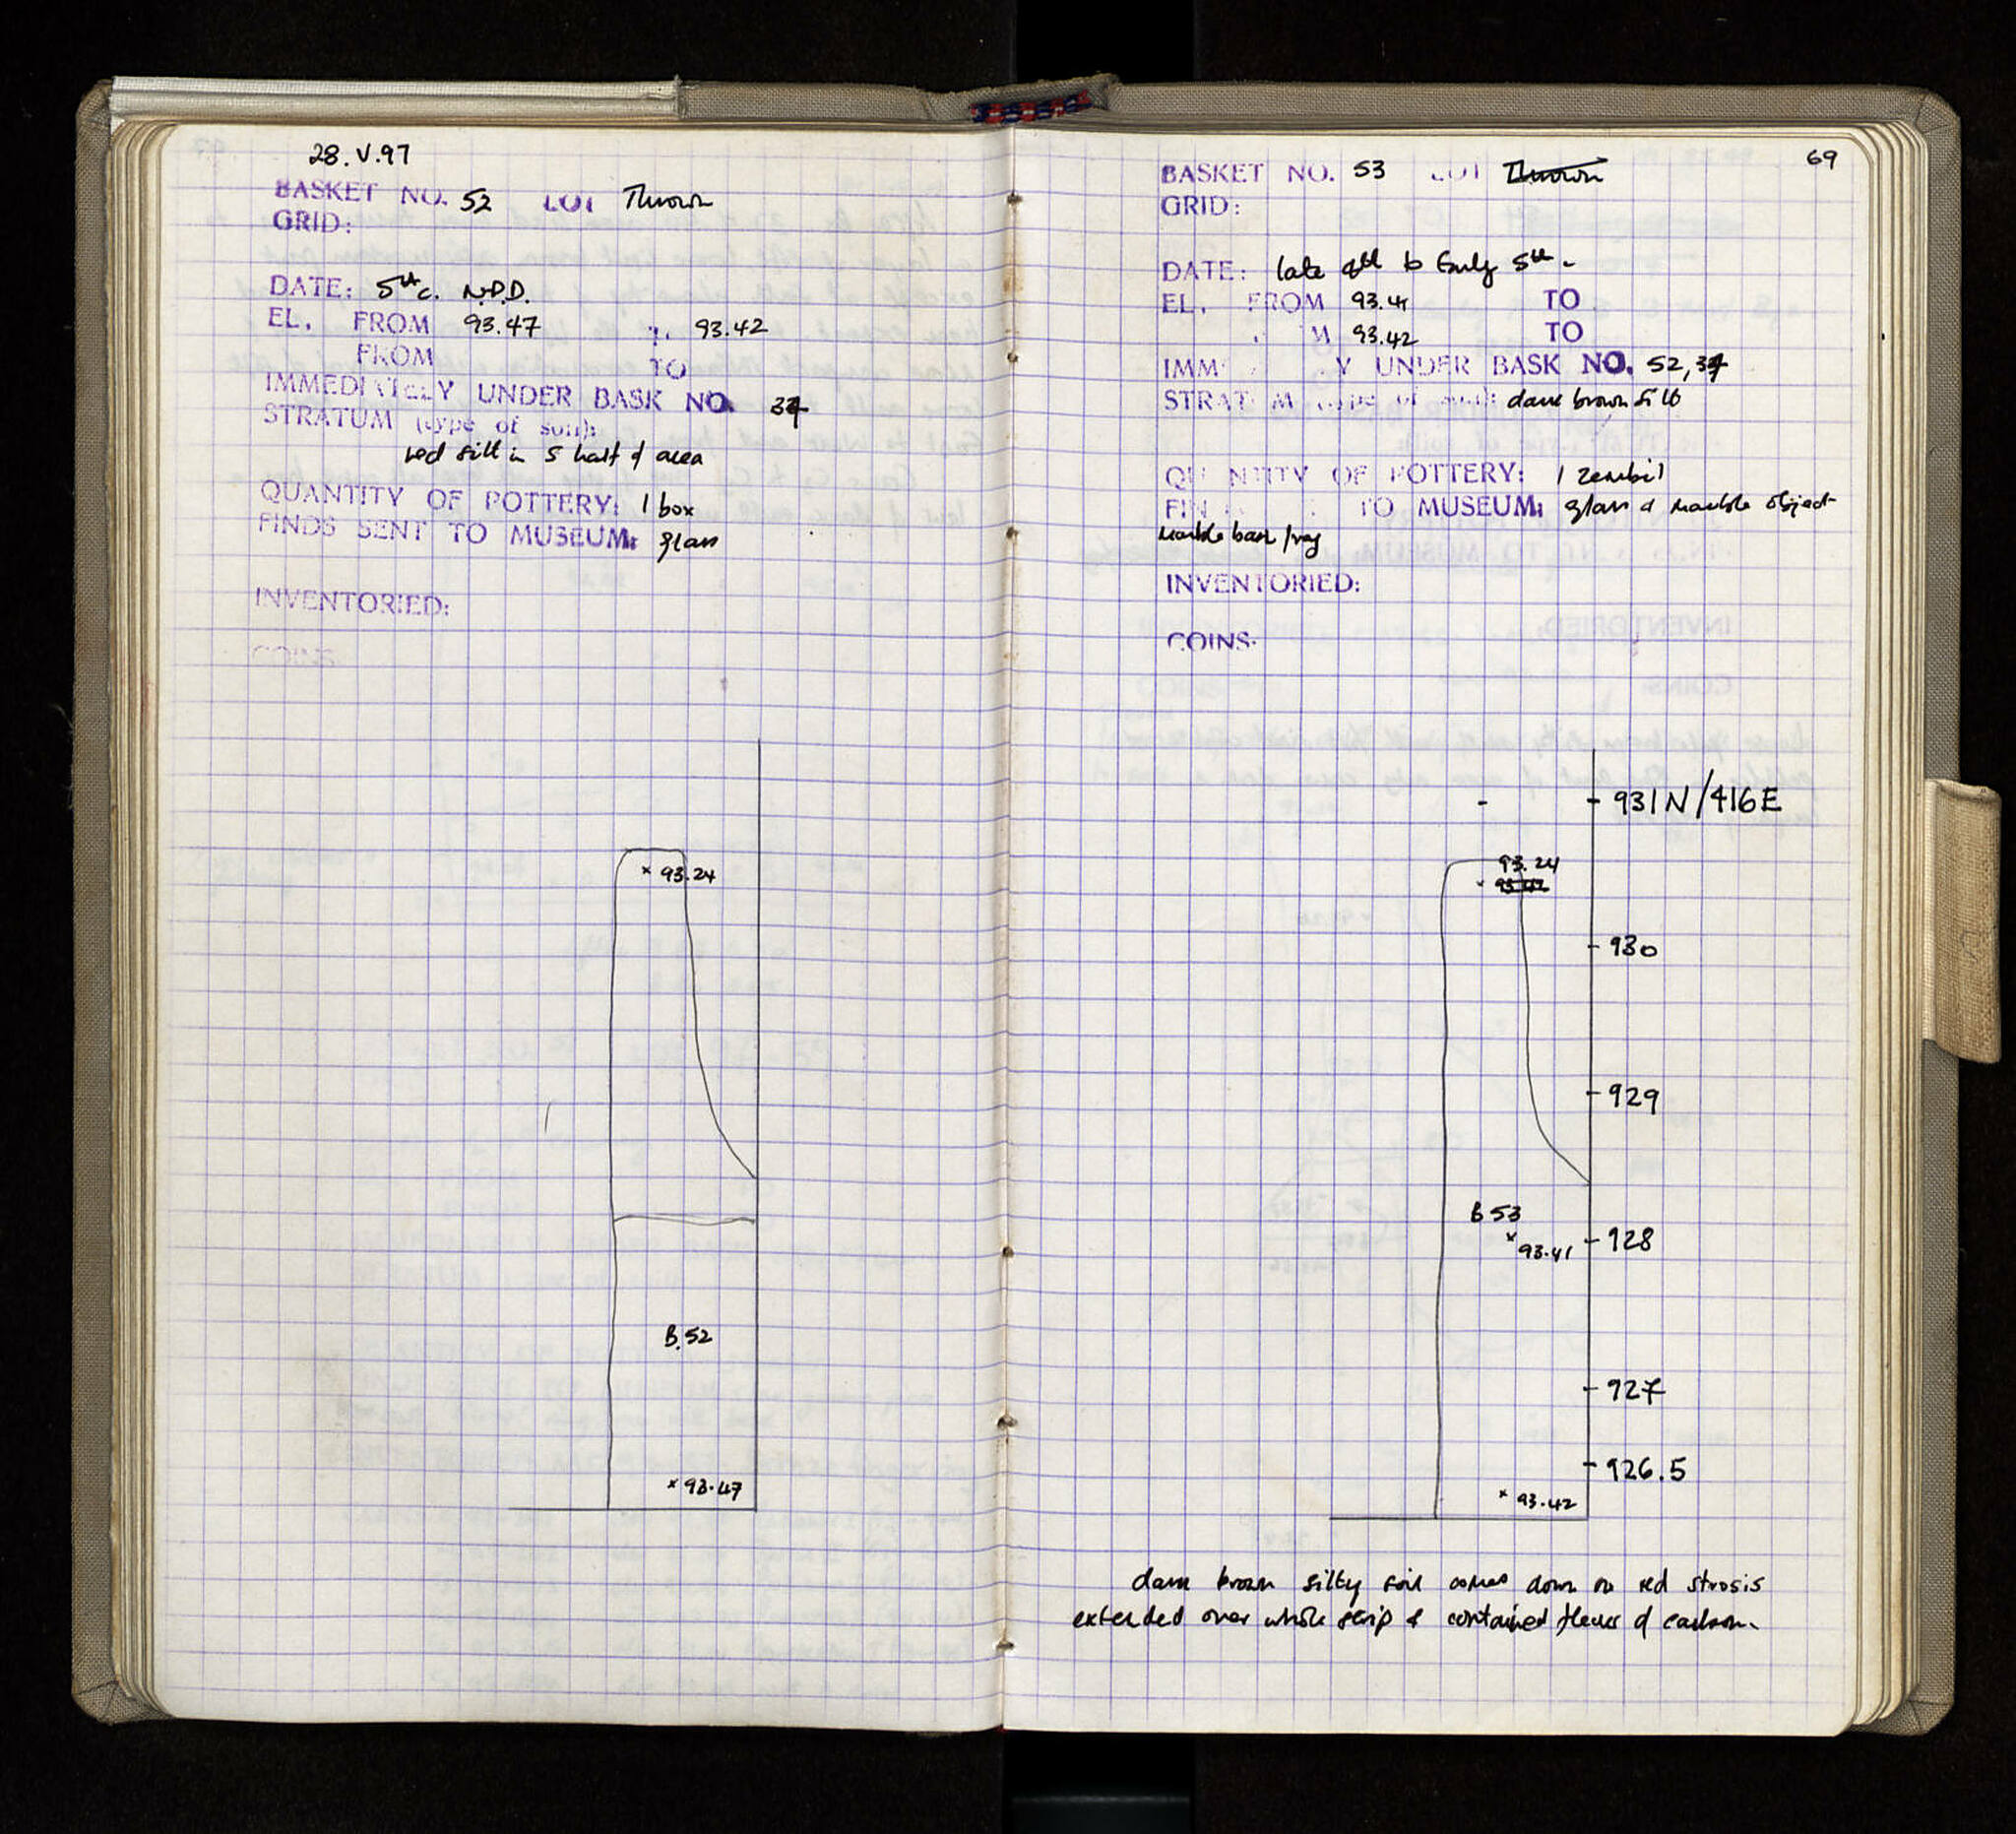 28.V.97
BASKET NO. 52 LOT Thrown
GRID:
DATE: 5th c. N.P.D.
EL. FROM 93.47 93.42
FROM TO
IMMEDIATELY UNDER BASK NO. 34
STRATUM (type of soil):
red silt in S half of area
QUANTITY OF POTTERY: 1 box
FINDS SENT TO MUSEUM: glass
INVENTORIED:
COINS:
× 93.24
B.52
× 93.47
69
BASKET NO. 53 LOT Thrown
GRID:
DATE: late 4th to Early 5th.
EL. FROM 93.41 TO
M 93.42 TO
IMM Y UNDER BASK NO. 52, 34
STRAT M (type of soil): dark brown silt
QU NTITY OF POTTERY: 1 zembil
FIN TO MUSEUM: glass & marble object
marble base frag
INVENTORIED:
COINS:
931N/416E
93.24
× 93.42
930
929
B 53
× 93.41
928
927
926.5
× 93.42
dark brown silty soil comes down on red strosis
extended over whole strip & contained flecks of carbon.